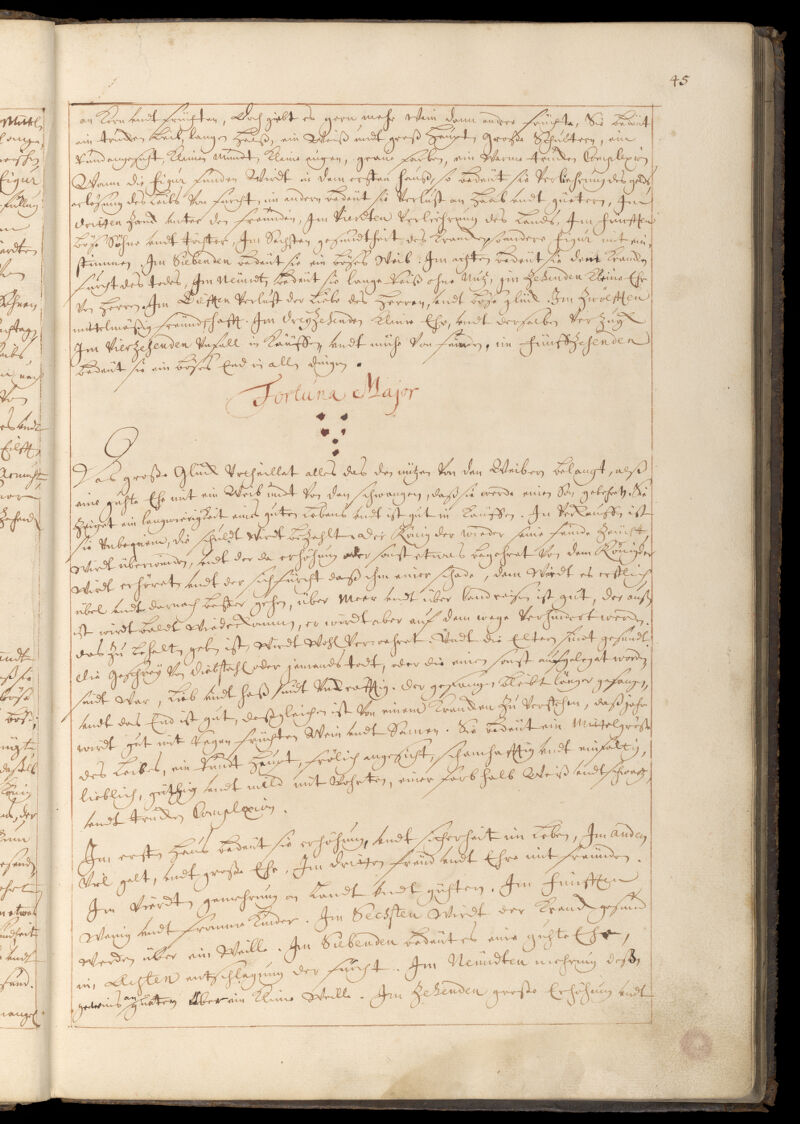 45
an Korn undt früchten, doch gibt es gern mehr wein dann andere früchte, Sie bedeüt
ein truden leib langen halß, ein weiß undt groß haupt, große Schultern, ein
rund angesicht, kleinen mundt, kleine augen, graue farben, ein warme truden Complexion
Wann die figur funden wirdt in dem ersten hauß, so bedeüt sie
erlösung des leibs von furcht, im andern bedeüt sie verlust an haab undt guetern, Im
dritten Zand unter den freunden, Im Vierdten verliehrung des Lands, Im fünfften
böse Söhne undt töchter, Im Sechsten gesundtheit des Kranden, andere figur mit ein
stimmen, Im Siebenden bedeüt sie ein böses Weib. Im achten bedeüt sie dem Kranden
furcht des todes, Im Neündten bedeüt sie lange Reiß ohne Nutz, im Zehenden kleine Ehr
von herrn, Im Eilfften Verlust der liebe des Herren, undt böse glück. Im Zwölfften
mittelmäßig freundtschafft. Im dreyzehenden kleine Ehr, undt derselben
Im Vierzehenden unfall in Kauffen undt mühe von feinden, im fünffzehenden
bedeüt sie ein böses End in allen dingen.
Fortuna Major
Das große Glück alles das den nutzen von den Weibern belangt, alß
eine guhte Ehe mit ein Weib undt von den schwangern, daß sie werde einen Son gebehren, Sie
Zeiget ein langwirigkeit eins guten Lebens undt ist gut in Kauffen. Im Verkauffen ist
sie unbequem, die schuldt wirdt bezahlt, der König der wieder seine feinde
wirdt überwinden, undt der da erhöhung oder sonst etwas begehret von dem König der
wirdt erhöret undt der sich fürcht daß ihm einer schade, dem wirdt es erstlich
übel undt darnach besser gehen, über Meer undt über landt reisen ist gut, der auß
ist wirdt baldt wiederkommen, er wirdt aber auf dem wege verhindert werden.
das zu behalten geben ist wirdt wohl verwahret. Undt die Eltern sindt gesundt.
die geschrey von diebstahl oder jemandts todt, oder die einem sonst aufgelegt worden
sindt war, lieb undt haß sindt. der gefangen bleibt länger gefangen,
undt das End ist gut, deßgleichen ist von einem Kranden zu verstehen, daß jahr
wirdt gut mit regen früchten Wein undt Samen. Sie bedeüt ein Mittelgröße
des leibes, ein rundt haupt, frölich angesicht, schamhafftig undt einfältig,
lieblich, gühtig undt mild mit Worten, einer farb halb weiß undt schwartz,
undt truden Complexion.
Im ersten haus bedeüt sie erhöhung undt sicherheit im leben, Im andern
Viel gelt, undt große Ehr. Im dritten freud undt Ehre mit freunden.
Im Vierdten gemehrung an Landt undt guhtern. Im fünfften
wenig undt fromme kinder. Im Sechsten wirdt der Krand gesund
werden über ein Weille. Im Siebenden bedeüt es eine guhte Ehe,
im Achten entschlagung der furcht. Im Neündten mehrung deß
gewins an guhtern über ein kleine Weille. Im Zehenden große Erhöhung undt